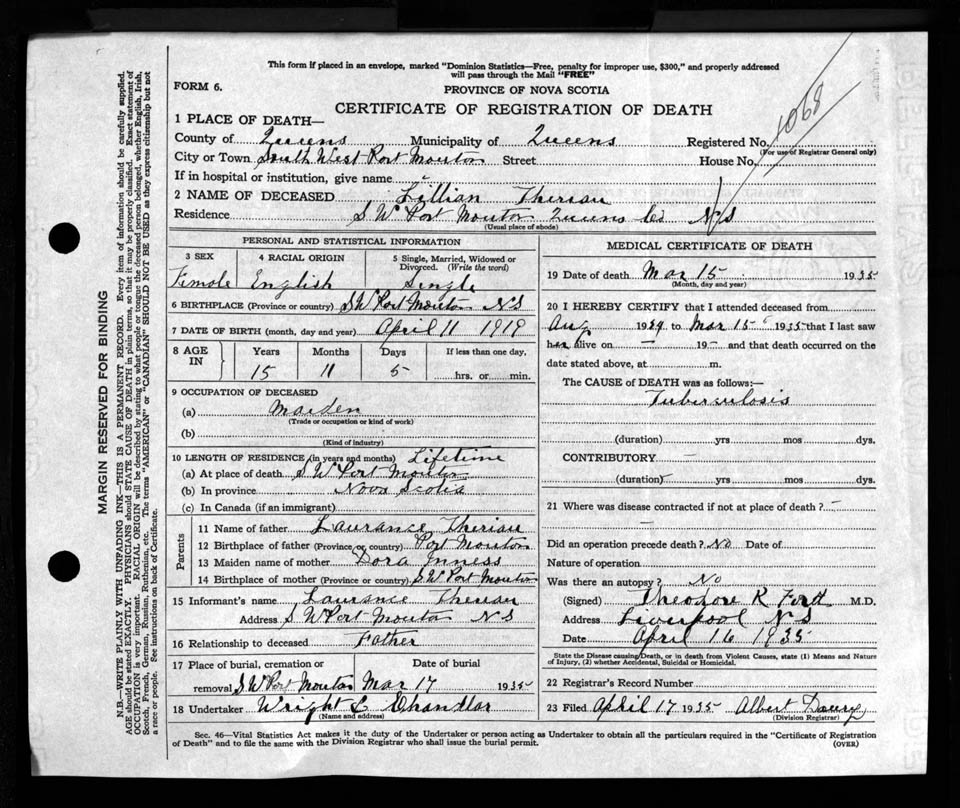 This form if placed in an envelope, marked "Dominion Statistics—Free, penalty for improper use, $300," and properly addressed
will pass through the Mail "FREE"
FORM 6.
PROVINCE OF NOVA SCOTIA
CERTIFICATE OF REGISTRATION OF DEATH
1068
1 PLACE OF DEATH—
County of Queens Municipality of Queens Registered No.
(For use of Registrar General only)
City or Town South West Port Mouton Street House No.
If in hospital or institution, give name
2 NAME OF DECEASED Lillian Therian
Residence S W Port Mouton Queens Co N S
(Usual place of abode)
PERSONAL AND STATISTICAL INFORMATION
3 SEX 4 RACIAL ORIGIN 5 Single, Married, Widowed or Divorced. (Write the word)
Female English Single
6 BIRTHPLACE (Province or country) S W Port Mouton N S
7 DATE OF BIRTH (month, day and year) April 11 1919
8 AGE IN Years Months Days If less than one day,
15 11 5 hrs. or min.
9 OCCUPATION OF DECEASED
(a) Maiden
(Trade or occupation or kind of work)
(b)
(Kind of industry)
10 LENGTH OF RESIDENCE (in years and months) Lifetime
(a) At place of death S W Port Mouton
(b) In province Nova Scotia
(c) In Canada (if an immigrant)
Parents
11 Name of father Laurance Therian
12 Birthplace of father (Province or country) Port Mouton
13 Maiden name of mother Dora Inness
14 Birthplace of mother (Province or country) S W Port Mouton
15 Informant's name Laurance Therian
Address S W Port Mouton N S
16 Relationship to deceased Father
17 Place of burial, cremation or Date of burial
removal S W Port Mouton Mar 17 1935
18 Undertaker Wright & Chandler
(Name and address)
MEDICAL CERTIFICATE OF DEATH
19 Date of death Mar 15 1935
(Month, day and year)
20 I HEREBY CERTIFY that I attended deceased from
Aug 1929 to Mar 15 1935 that I last saw
her alive on — 19— and that death occurred on the
date stated above, at m.
The CAUSE of DEATH was as follows:—
Tuberculosis
(duration) yrs mos dys.
CONTRIBUTORY —
(duration) yrs mos dys.
21 Where was disease contracted if not at place of death? —
Did an operation precede death? No Date of
Nature of operation
Was there an autopsy? No
(Signed) Theodore R Ford M.D.
Address Liverpool N S
Date April 16 1935
State the Disease causing Death, or in death from Violent Causes, state (1) Means and Nature
of Injury, (2) whether Accidental, Suicidal or Homicidal.
22 Registrar's Record Number
23 Filed April 17 1935 Albert
(Division Registrar)
Sec. 46—Vital Statistics Act makes it the duty of the Undertaker or person acting as Undertaker to obtain all the particulars required in the "Certificate of Registration
of Death" and to file the same with the Division Registrar who shall issue the burial permit.
(OVER)
MARGIN RESERVED FOR BINDING
N.B.—WRITE PLAINLY WITH UNFADING INK—THIS IS A PERMANENT RECORD. Every item of information should be carefully supplied.
AGE should be stated EXACTLY. PHYSICIANS should STATE CAUSE OF DEATH in plain terms, so that it may be properly classified. Exact statement of
OCCUPATION is very important. RACIAL ORIGIN will be described by stating to what people or tongue the deceased person belonged, whether English, Irish,
Scotch, French, German, Russian, Ruthenian, etc. The terms "AMERICAN" or "CANADIAN" SHOULD NOT BE USED as they express citizenship but not
a race or people. See instructions on back of Certificate.